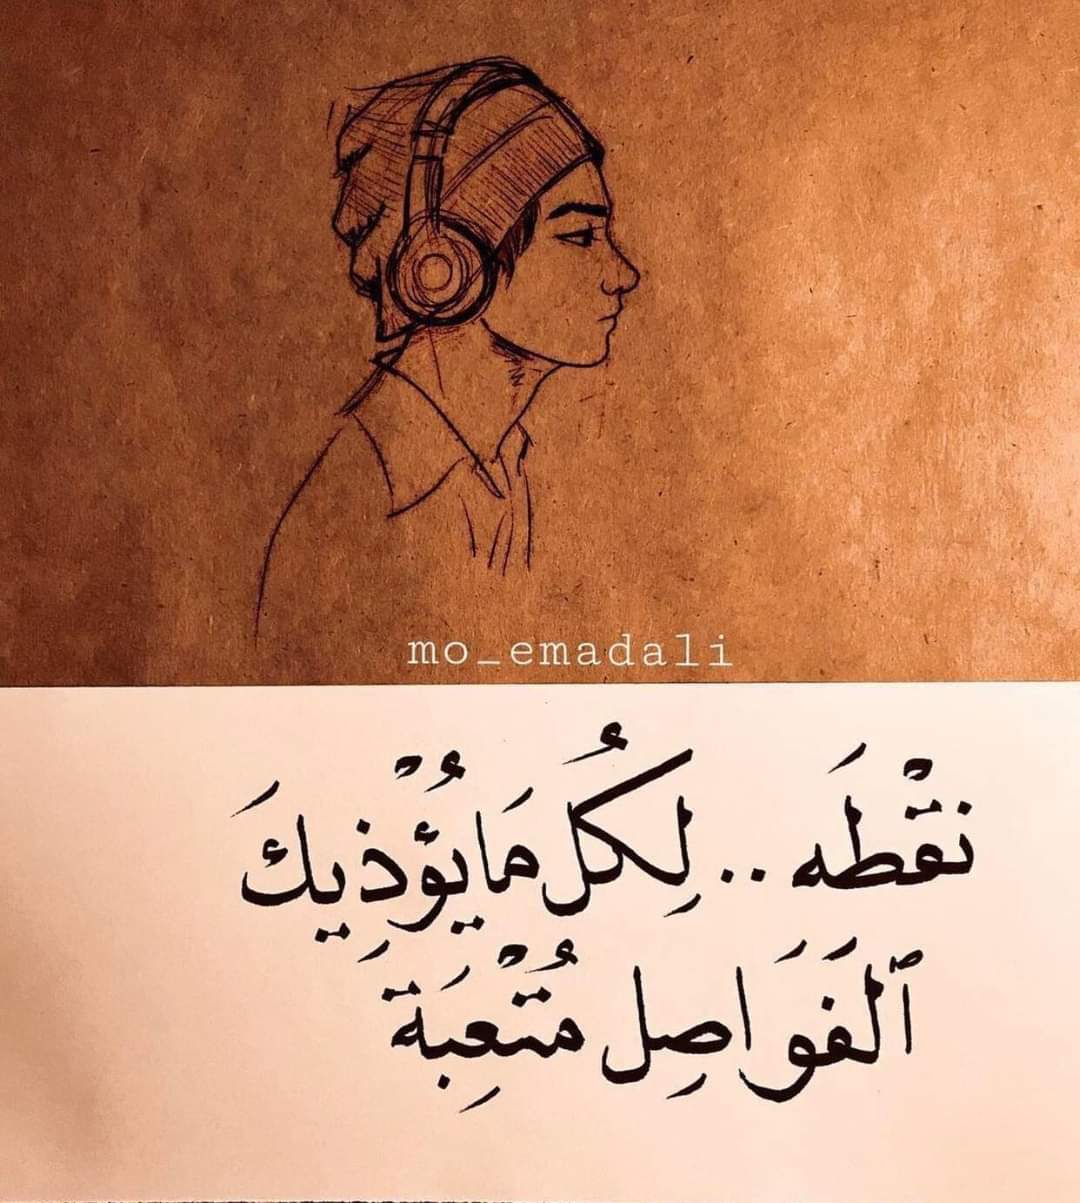 mo_emadali
نُقْطَه .. لِكُل مَا يُؤْذِيكَ
ٱلفَوَاصِل مُتْعِبَة